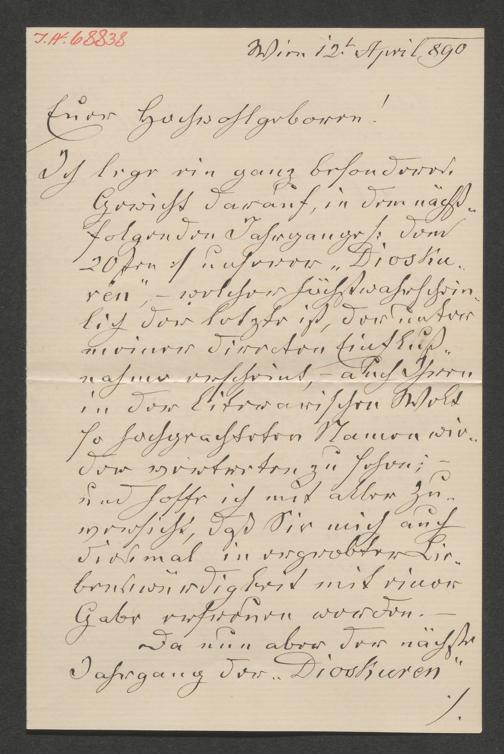 I. N. 68838
Wien 12t April 890
Euer Hochwohlgeboren!
Ich lege ein ganz besonderes
Gewicht darauf, in dem nächst-
folgenden Jahrgange /: dem
20sten :/ unserer „Diosku-
ren", – welcher höchstwahrschein-
lich der letzte ist, der unter
meiner directen Einfluß-
nahme erscheint, – auch Ihren
in der literarischen Welt
so hochgeachteten Namen wie-
der vertreten zu sehen; –
und hoffe ich mit aller Zu-
versicht, daß Sie mich auch
diesmal in erprobter Lie-
benswürdigkeit mit einer
Gabe erfreuen werden. –
Da nun aber der nächste
Jahrgang der „Dioskuren"
./.